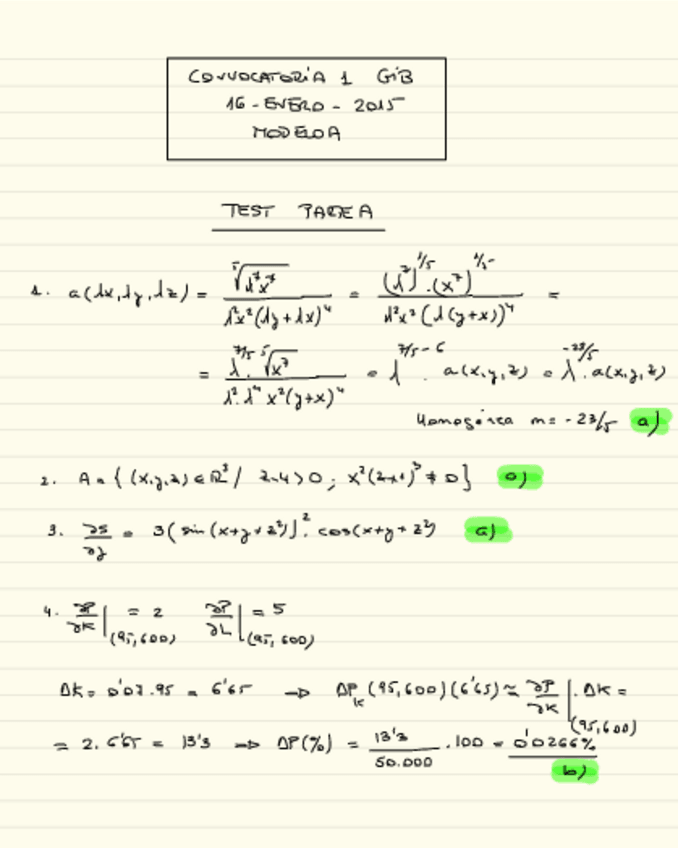 CONVOCATORIA 1 GiB
16 - ENERO - 2015
MODELO A
TEST PARTE A
1. a(λx,λy,λz) = ⁵√(λ⁷x⁷) / λ²x²(λy+λx)⁴ = (λ⁷)^1/5 · (x⁷)^1/5 / λ²x²(λ(y+x))⁴ =
= λ^7/5 · ⁵√(x⁷) / λ²·λ⁴ x²(y+x)⁴ = λ^7/5-6 · a(x,y,z) = λ^-23/5 · a(x,y,z)
Homogénea m = -23/5 a)
2. A = {(x,y,z) ∈ ℝ³ / z-4>0 ; x²(2x+1)³ ≠ 0}
3. ∂s/∂y = 3(sin(x+y+z²))² · cos(x+y+z²) a)
4. ∂P/∂K|(95,600) = 2 ∂P/∂L|(95,600) = 5
ΔK = 0'07·95 = 6'65 → ΔP_K (95,600)(6'65) ≈ ∂P/∂K|(95,600) · ΔK =
= 2·6'65 = 13'3 → ΔP(%) = 13'3/50.000 · 100 = 0'0266%
b)